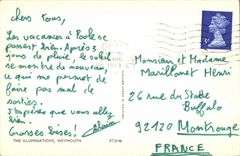 chers tous,
Les vacances à Poole se
passent bien. Après 3
jours de pluie, le soleil
se montre de nouveau,
ce qui me permet de
faire pas mal de
sorties.
J'espère que vous allez
bien.
Grosses bises! Alain
THE ILLUMINATIONS, WEYMOUTH
PT23146
Monsieur et Madame
Marillonnet Henri
26 rue du Stade
Buffalo
92120 Montrouge
FRANCE